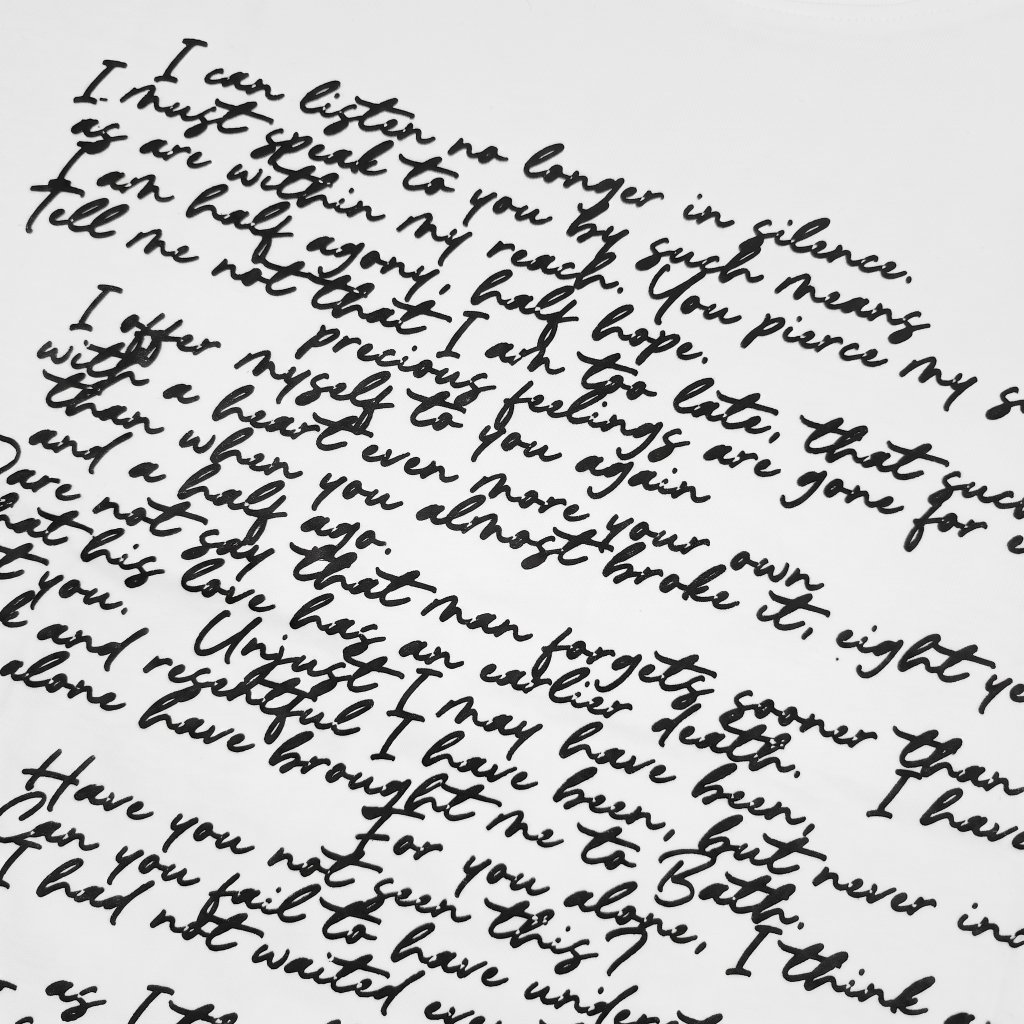 I can listen no longer in silence.
I must speak to you by such means
as are within my reach. You pierce my
I am half agony, half hope.
Tell me not that I am too late, that such
precious feelings are gone for
I offer myself to you again
with a heart even more your own
than when you almost broke it, eight
and a half ago.
Dare not say that man forgets sooner than
that his love has an earlier death. I have
you. Unjust I may have been,
and resentful I have been, but never
alone have brought me to Bath.
For you alone, I think
Have you not seen this?
Can you fail to have
I had not waited
as I